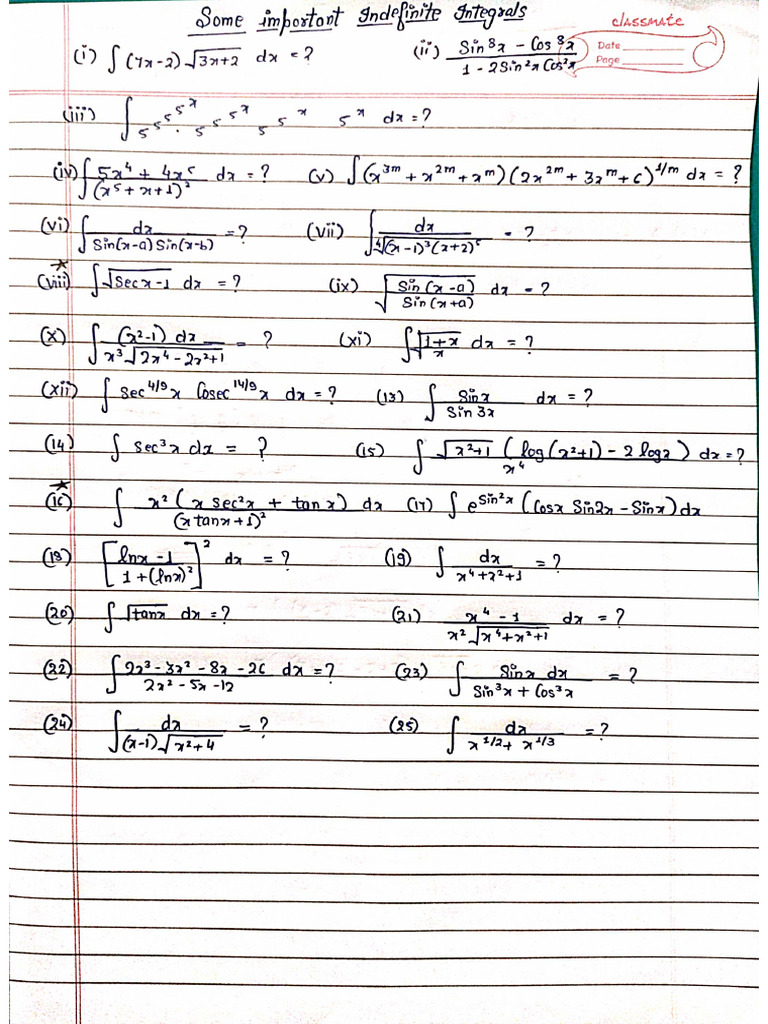 Some important Indefinite Integrals
classmate
Date
Page
(i) ∫ (7x-2) √(3x+2) dx = ?
(ii) (Sin⁸x - Cos⁸x)/(1 - 2Sin²x Cos²x)
(iii) ∫ 5^(5^(5^x)) . 5^(5^x) 5^x dx = ?
(iv) ∫ (5x⁴ + 4x⁵)/(x⁵ + x + 1)² dx = ?
(v) ∫ (x^(3m) + x^(2m) + x^m)(2x^(2m) + 3x^m + 6)^(1/m) dx = ?
(vi) ∫ dx/(Sin(x-a) Sin(x-b)) = ?
(vii) ∫ dx/⁴√((x-1)³(x+2)⁵) = ?
*
(viii) ∫ √(Sec x - 1) dx = ?
(ix) √(Sin(x-a)/Sin(x+a)) dx = ?
(x) ∫ (x²-1) dx/(x³ √(2x⁴ - 2x²+1)) = ?
(xi) ∫ √((1+x)/x) dx = ?
(xii) ∫ sec^(4/9) x Cosec^(14/9) x dx = ?
(13) ∫ Sin x/Sin 3x dx = ?
(14) ∫ sec³x dx = ?
(15) ∫ √(x²+1) (log(x²+1) - 2 log x)/x⁴ dx = ?
*
(16) ∫ x² (x sec²x + tan x)/(x tanx + 1)² dx
(17) ∫ e^(Sin²x) (Cosx Sin2x - Sinx) dx
(18) [(lnx - 1)/(1 + (lnx)²)]² dx = ?
(19) ∫ dx/(x⁴+x²+1) = ?
(20) ∫ √tanx dx = ?
(21) (x⁴ - 1)/(x² √(x⁴+x²+1)) dx = ?
(22) ∫ (2x³ - 3x² - 8x - 26)/(2x² - 5x - 12) dx = ?
(23) ∫ Sinx dx/(Sin³x + Cos³x) = ?
(24) ∫ dx/((x-1) √(x²+4)) = ?
(25) ∫ dx/(x^(1/2) + x^(1/3)) = ?